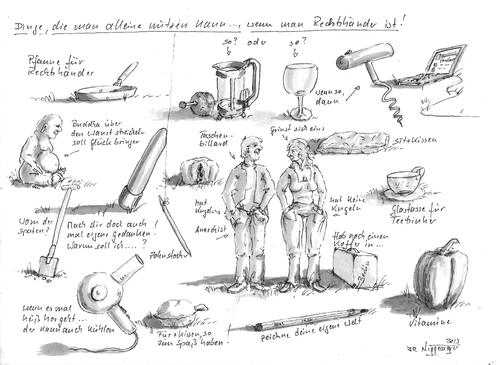 Dinge, die man alleine nutzen kann..., wenn man Rechtshänder ist!
so? oder so?
Pfanne für
Rechtshänder
wenn so,
dann
Buddha über
den Wanst streicheln
soll Glück bringen
Taschen-
billard
Grinst sich eins
Sitzkissen
Wem der
Spaten?
Mach dir doch auch
mal eigene Gedanken.
Warum soll ich....?
hat
Kugeln
Anarchist
hat keine
Kugeln
Glastasse für
Teetrinker
Zahnstocher
Hab noch einen
Koffer in...
wenn es mal
heiß hergeht...
der kann auch kühlen
Furzkissen, so
zum Spaß haben!
zeichne deine eigene Welt
Vitamine
2013